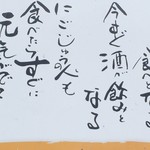 食べたくなる
今すぐ酒が飲みたくなる
にごじゅうの人も
食べたらすぐに
元気がでる